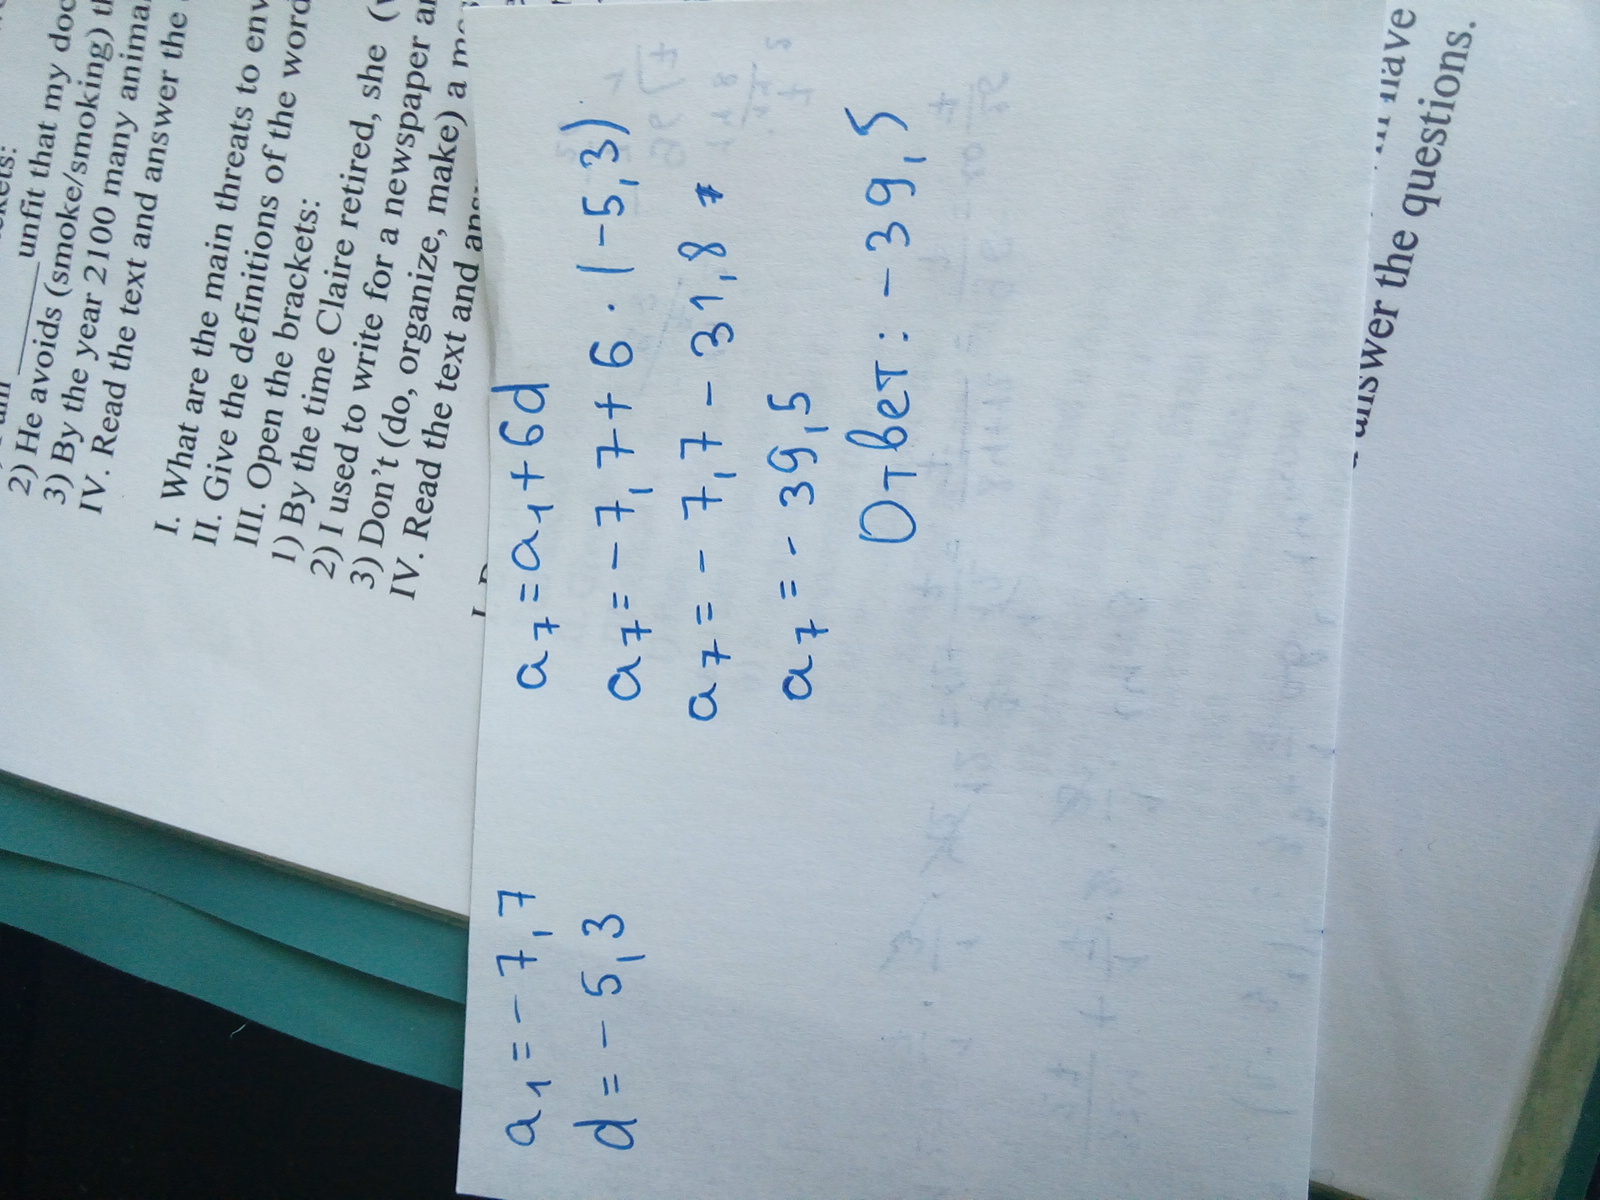 unfit that my doc
2) He avoids (smoke/smoking) th
3) By the year 2100 many anima
IV. Read the text and answer the
I. What are the main threats to env
II. Give the definitions of the word
III. Open the brackets:
1) By the time Claire retired, she (
2) I used to write for a newspaper a
3) Don't (do, organize, make) a
IV. Read the text and
a₁ = - 7,7
d = - 5,3
a₇ = a₁ + 6d
a₇ = - 7,7 + 6 · (-5,3)
a₇ = - 7,7 - 31,8
a₇ = - 39,5
Ответ: - 39,5
answer the questions.